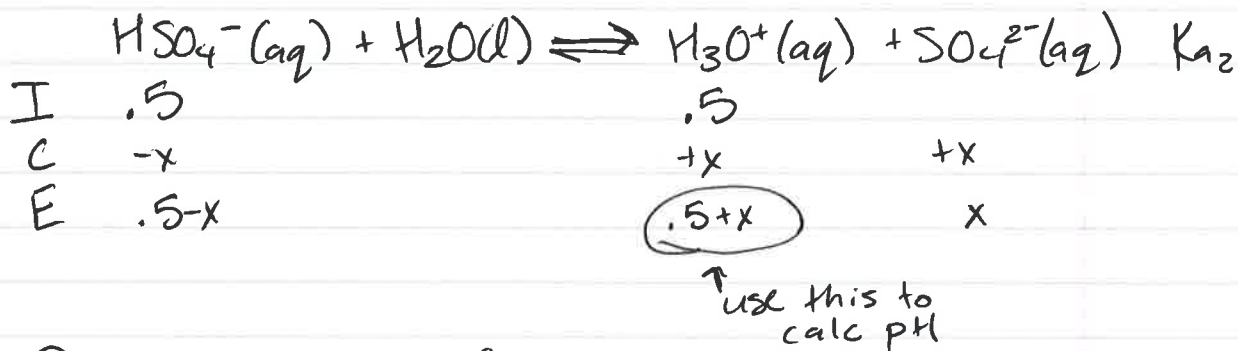 HSO₄⁻(aq) + H₂O(l) ⇌ H₃O⁺(aq) + SO₄²⁻(aq) Ka₂
I .5 .5
C -x +x +x
E .5-x .5+x x
↑ use this to
calc pH